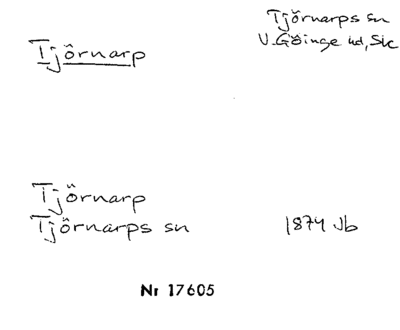 Tjörnarp
Tjörnarps sn
V. Göinge hd, Sk
Tjörnarp
Tjörnarps sn
1874 Jb
Nr 17605